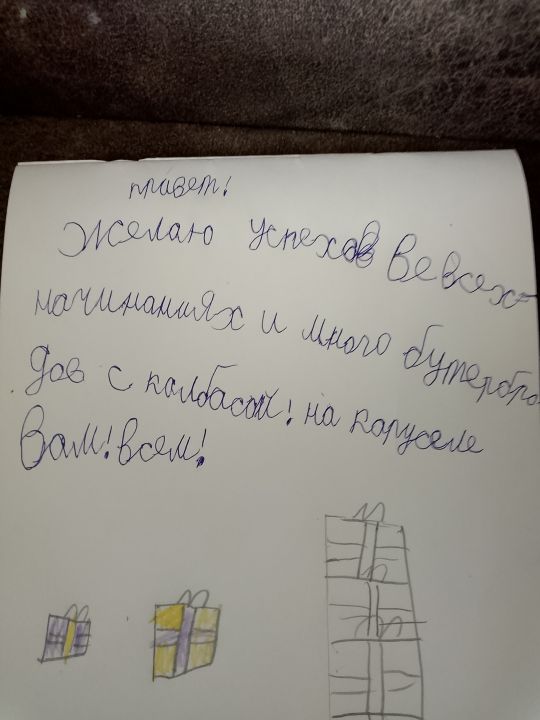 привет!
Желаю успехов Вевсех
начинаниях и много бутербро
дов с калбасой! на каруселе
Вам! всем!